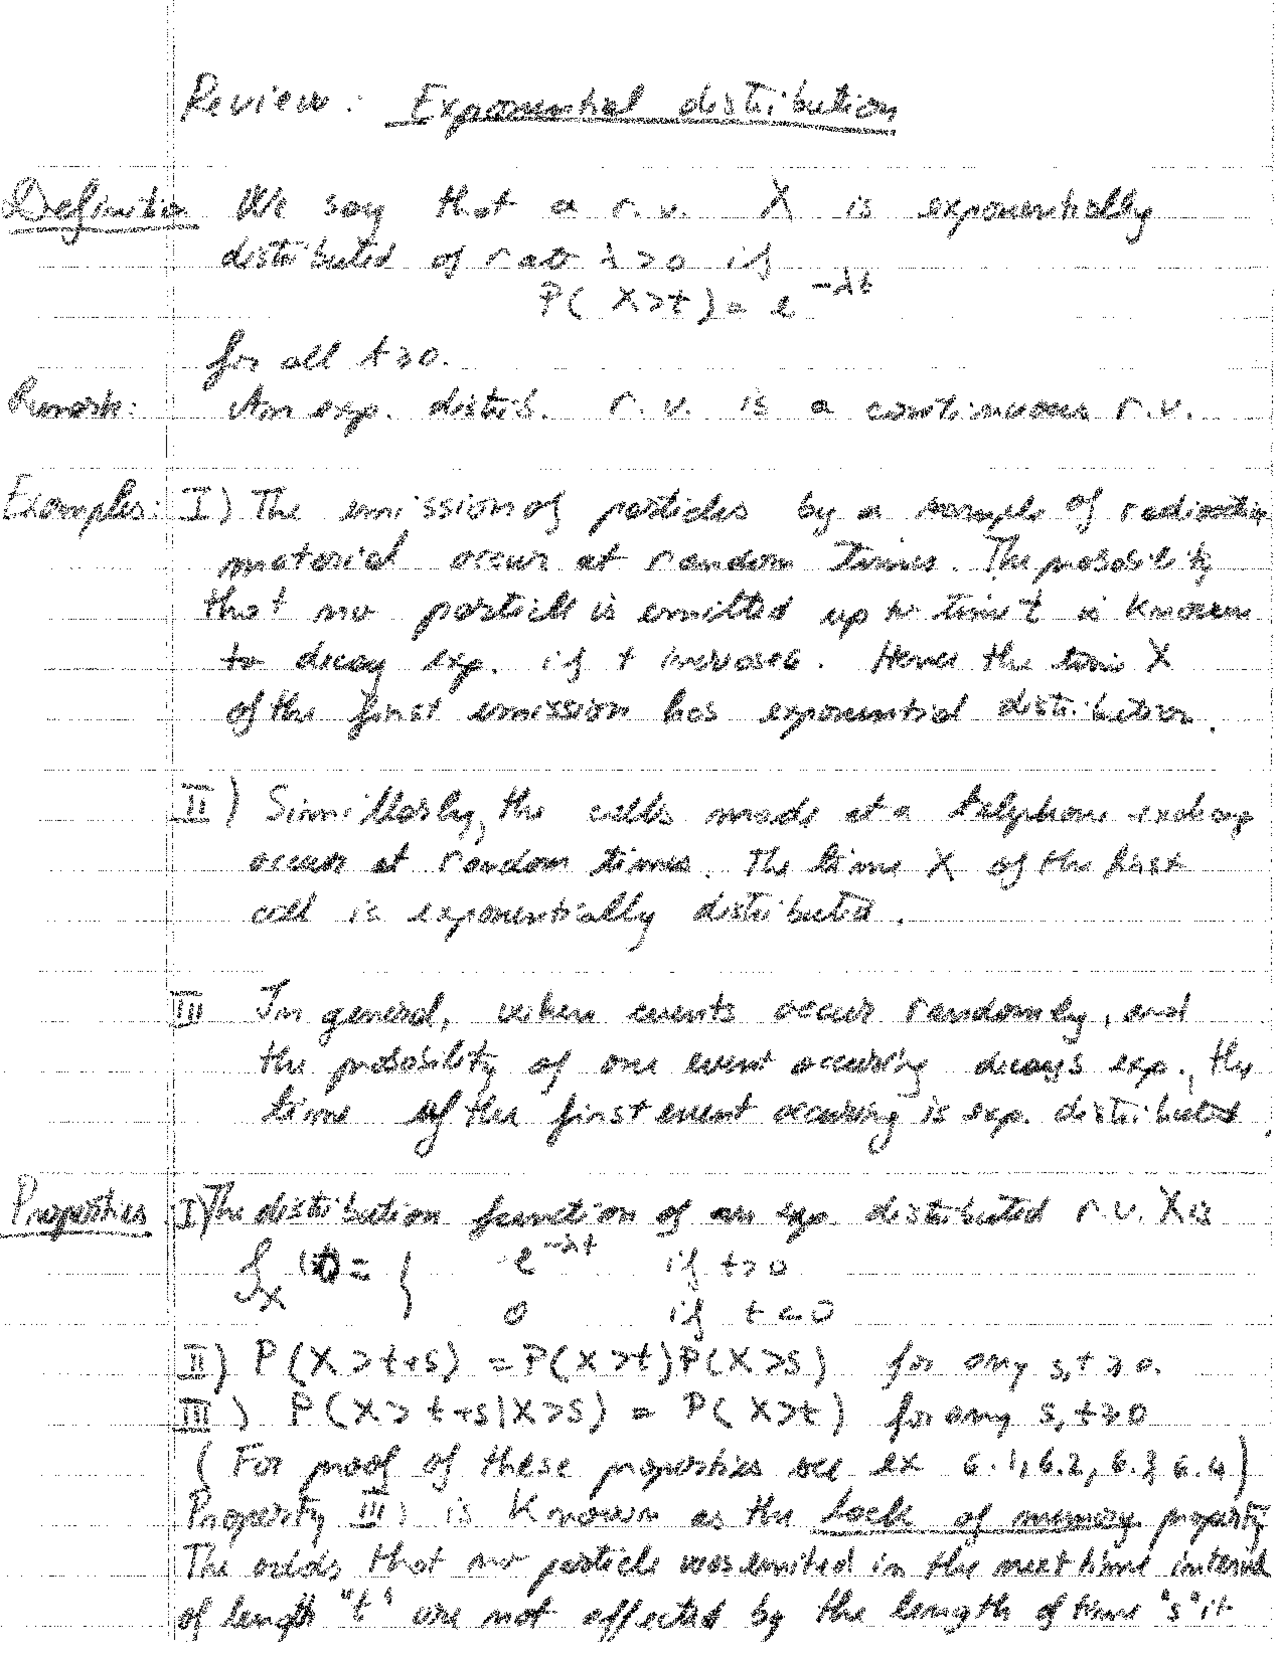 Review: Exponential distribution
Definition We say that a r.v. X is exponentially
distributed of rate λ>0 if
P( X>t) = e^{-λt}
for all t≥0.
Remark: An exp. distrib. r.v. is a continuous r.v.
Examples: I) The emission of particles by a sample of radioactive
material occur at random times. The probability
that no particle is emitted up to time t is known
to decay exp. if t increases. Hence the time X
of the first emission has exponential distribution.
II) Simillarly, the calls made at a telephone exchange
occur at random times. The time X of the first
call is exponentially distributed.
III In general, when events occur randomly, and
the probability of one event occuring decays exp., the
time of the first event occuring is exp. distributed.
Properties I) The distribution function of an exp distributed r.v. X is
f_X (t) = { e^{-λt} if t>0
0 if t<0
II) P(X>t+s) = P(X>t)P(X>s) for any s,t ≥0.
III) P(X>t+s|X>s) = P(X>t) for any s,t≥0
(For proof of these properties see ex 6.1, 6.2, 6.3 6.4)
Property III) is known as the lack of memory property
The odds that no particle was emitted in the next time interval
of length "t" are not affected by the length of time "s" it